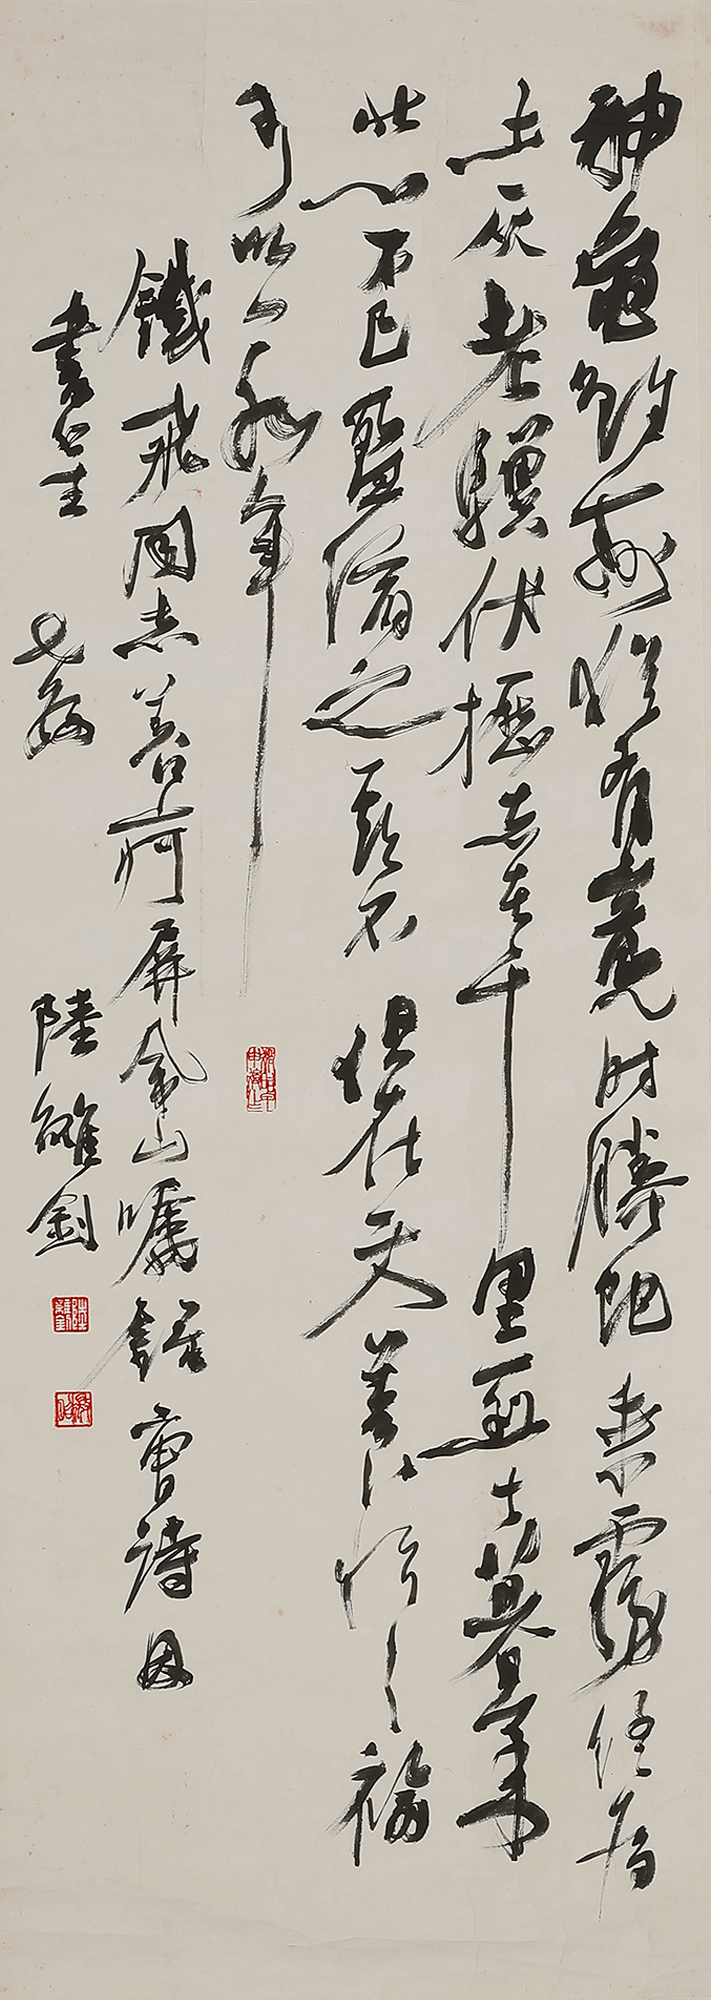 神龜雖壽猶有竟時騰蛇乘霧終為
土灰老驥伏櫪志在千里烈士暮年
壯心不已盈縮之期不但在天養怡之福
可以永年
鐵飛同志養疴屏風山囑錄曹詩因
書 陸維釗